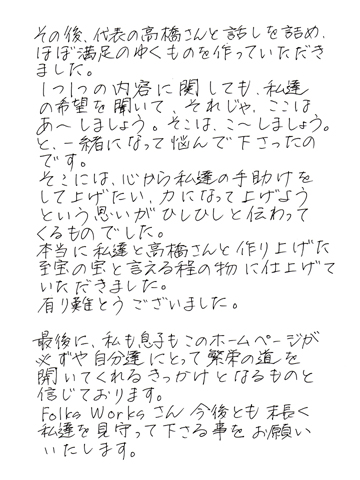 その後、代表の高橋さんと話しを詰め、
ほぼ満足のゆくものを作っていただき
ました。
1つ1つの内容に関しても、私達
の希望を聞いて、それじゃ、ここは
あ〜しましょう。そこは、こ〜しましょう。
と、一緒になって悩んで下さったの
です。
そこには、心から私達の手助けを
して上げたい、力になって上げよう
という思いがひしひしと伝わって
くるものでした。
本当に私達と高橋さんと作り上げた
至宝の宝と言える程の物に仕上げて
いただきました。
有り難とうございました。
最後に、私も息子もこのホームページが
必ずや自分達にとって繁栄の道を
開いてくれるきっかけとなるものと
信じております。
Folks Worksさん今後とも末長く
私達を見守って下さる事をお願い
いたします。